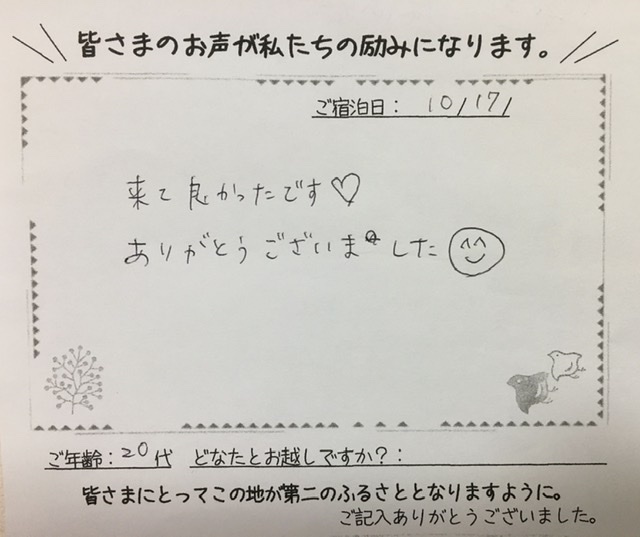 皆さまのお声が私たちの励みになります。
ご宿泊日： 10/17/
来て良かったです♡
ありがとうございました
ご年齢：20代 どなたとお越しですか？：
皆さまにとってこの地が第二のふるさととなりますように。
ご記入ありがとうございました。